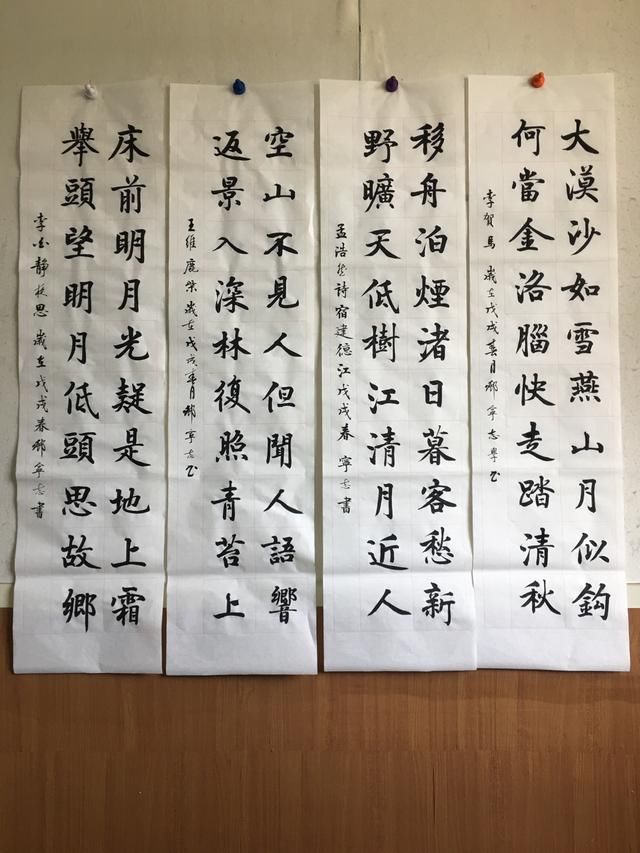 大漠沙如雪燕山月似鈎
何當金洛腦快走踏清秋
李賀馬 歲在戊戌春月 邢寧志
移舟泊煙渚日暮客愁新
野曠天低樹江清月近人
孟浩然詩宿建德江戊戌春 寧志書
空山不見人但聞人語響
返景入深林復照青苔上
王維鹿柴 歲在戊戌春月 邢寧志書
床前明月光疑是地上霜
舉頭望明月低頭思故鄉
李白靜夜思 歲在戊戌春邢寧志書